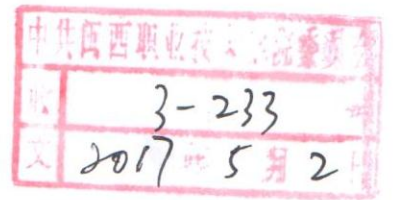 中共陕西职业技术学院委员会
收 3-233 号
文 2017 年 5 月 2 日